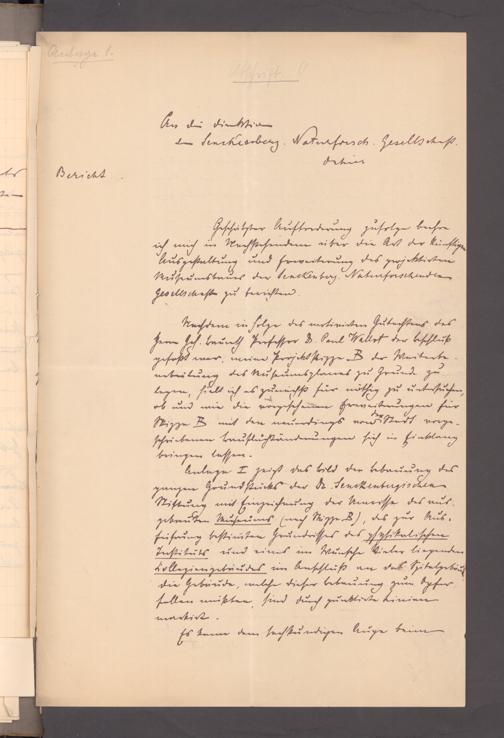 Anlage 1.
Abschrift
An die Direktion
der Senckenberg. Naturforsch. Gesellschaft.
dahier
Bericht.
Geschätzter Aufforderung zufolge beehre
ich mich in Nachstehendem über die Art der künftigen
Ausgestaltung und Erweiterung des projektirten
Museumsbaues der Senckenberg. Naturforschenden
Gesellschaft zu berichten.
Nachdem in Folge des motivirten Gutachtens des
Herrn Geh. Baurath Professor D. Paul Wallot der Beschluß
gefaßt war, meine Projektskizze B der Weiterbe-
arbeitung des Museumsplanes zu Grund zu
legen, hielt ich es zunächst für nöthig zu untersuchen,
ob und wie die vorgesehenen Erweiterungen für
Skizze B mit den neuerdings von der Stadt vorge-
schriebenen Baufluchtänderungen sich in Einklang
bringen lassen.
Anlage I zeigt das Bild der Bebauung des
ganzen Grundstücks der Dr. Senckenbergischen
Stiftung mit Einzeichnung der Umrisse des aus-
gebauten Museums (nach Skizze B), des zur Aus-
führung bestimmten Grundrisses des physikalischen
Instituts und eines im Wunsche Vieler liegenden
Kollegiengebäudes im Anschluß an das Spitalgebäude
die Gebäude, welche dieser Bebauung zum Opfer
fallen müßten, sind durch punktirte Linien
markirt.
Es kann dem sachkundigen Auge beim